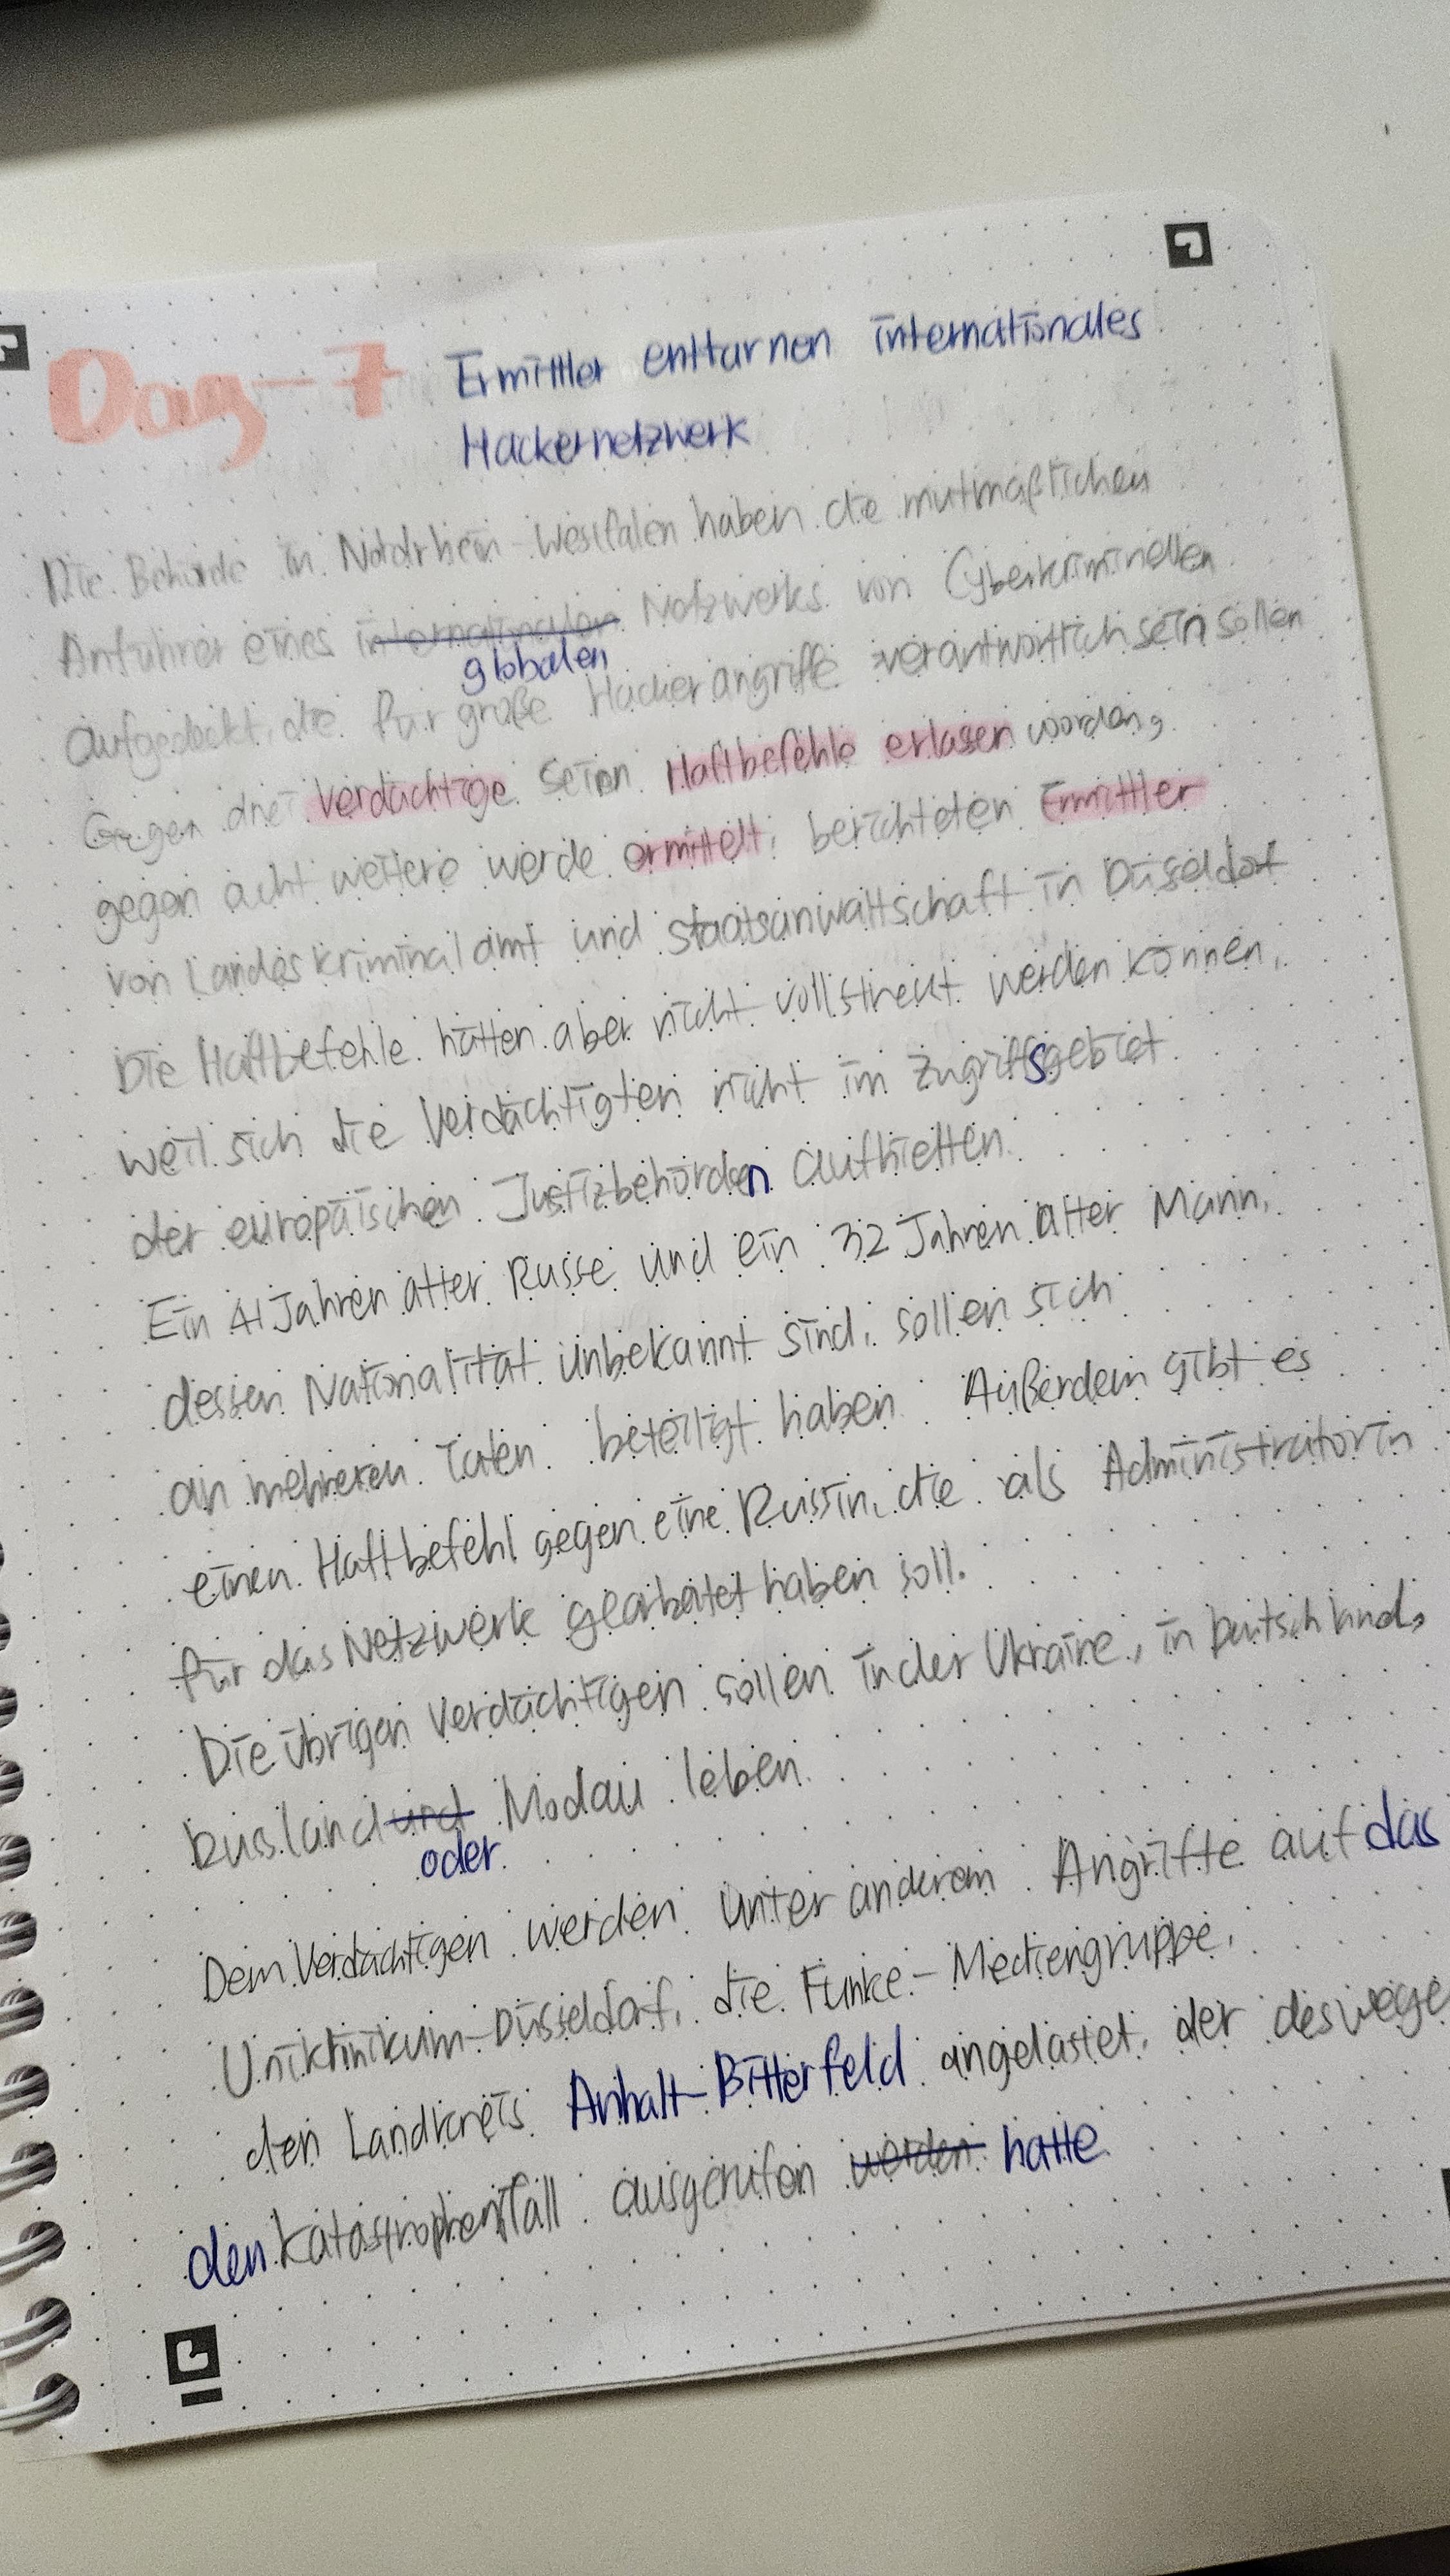 Day-7 Ermittler enttarnen internationales
Hackernetzwerk
Die Behörde in Nordrhein-Westfalen haben die mutmaßlichen
Anführer eines internationalen Netzwerks von Cyberkriminellen
globalen
aufgedeckt, die für große Hackerangriffe verantwortlich sein sollen
Gegen drei Verdächtige seien Haftbefehle erlasen worden,
gegen acht weitere werde ermittelt, berichteten Ermittler
von Landeskriminalamt und Staatsanwaltschaft in Düseldorf
Die Haftbefehle hätten aber nicht vollstreckt werden können,
weil sich die Verdächtigten nicht im Zugriffsgebiet
der europäischen Justizbehörden aufhielten.
Ein 41 Jahren alter Russe und ein 32 Jahren alter Mann,
dessen Nationalität unbekannt sind, sollen sich
an mehreren Taten beteiligt haben. Außerdem gibt es
einen Haftbefehl gegen eine Russin, die als Administratorin
für das Netzwerk gearbeitet haben soll.
Die übrigen Verdächtigen sollen in der Ukraine, in Deutschland,
Russland und Modau leben.
oder
Dem Verdächtigen werden unter anderem Angriffe auf das
Uniklinikum-Düsseldorf, die Funke-Mediengruppe,
den Landkreis Anhalt-Bitterfeld angelastet, der deswege
den Katastrophenfall ausgerufen worden hatte